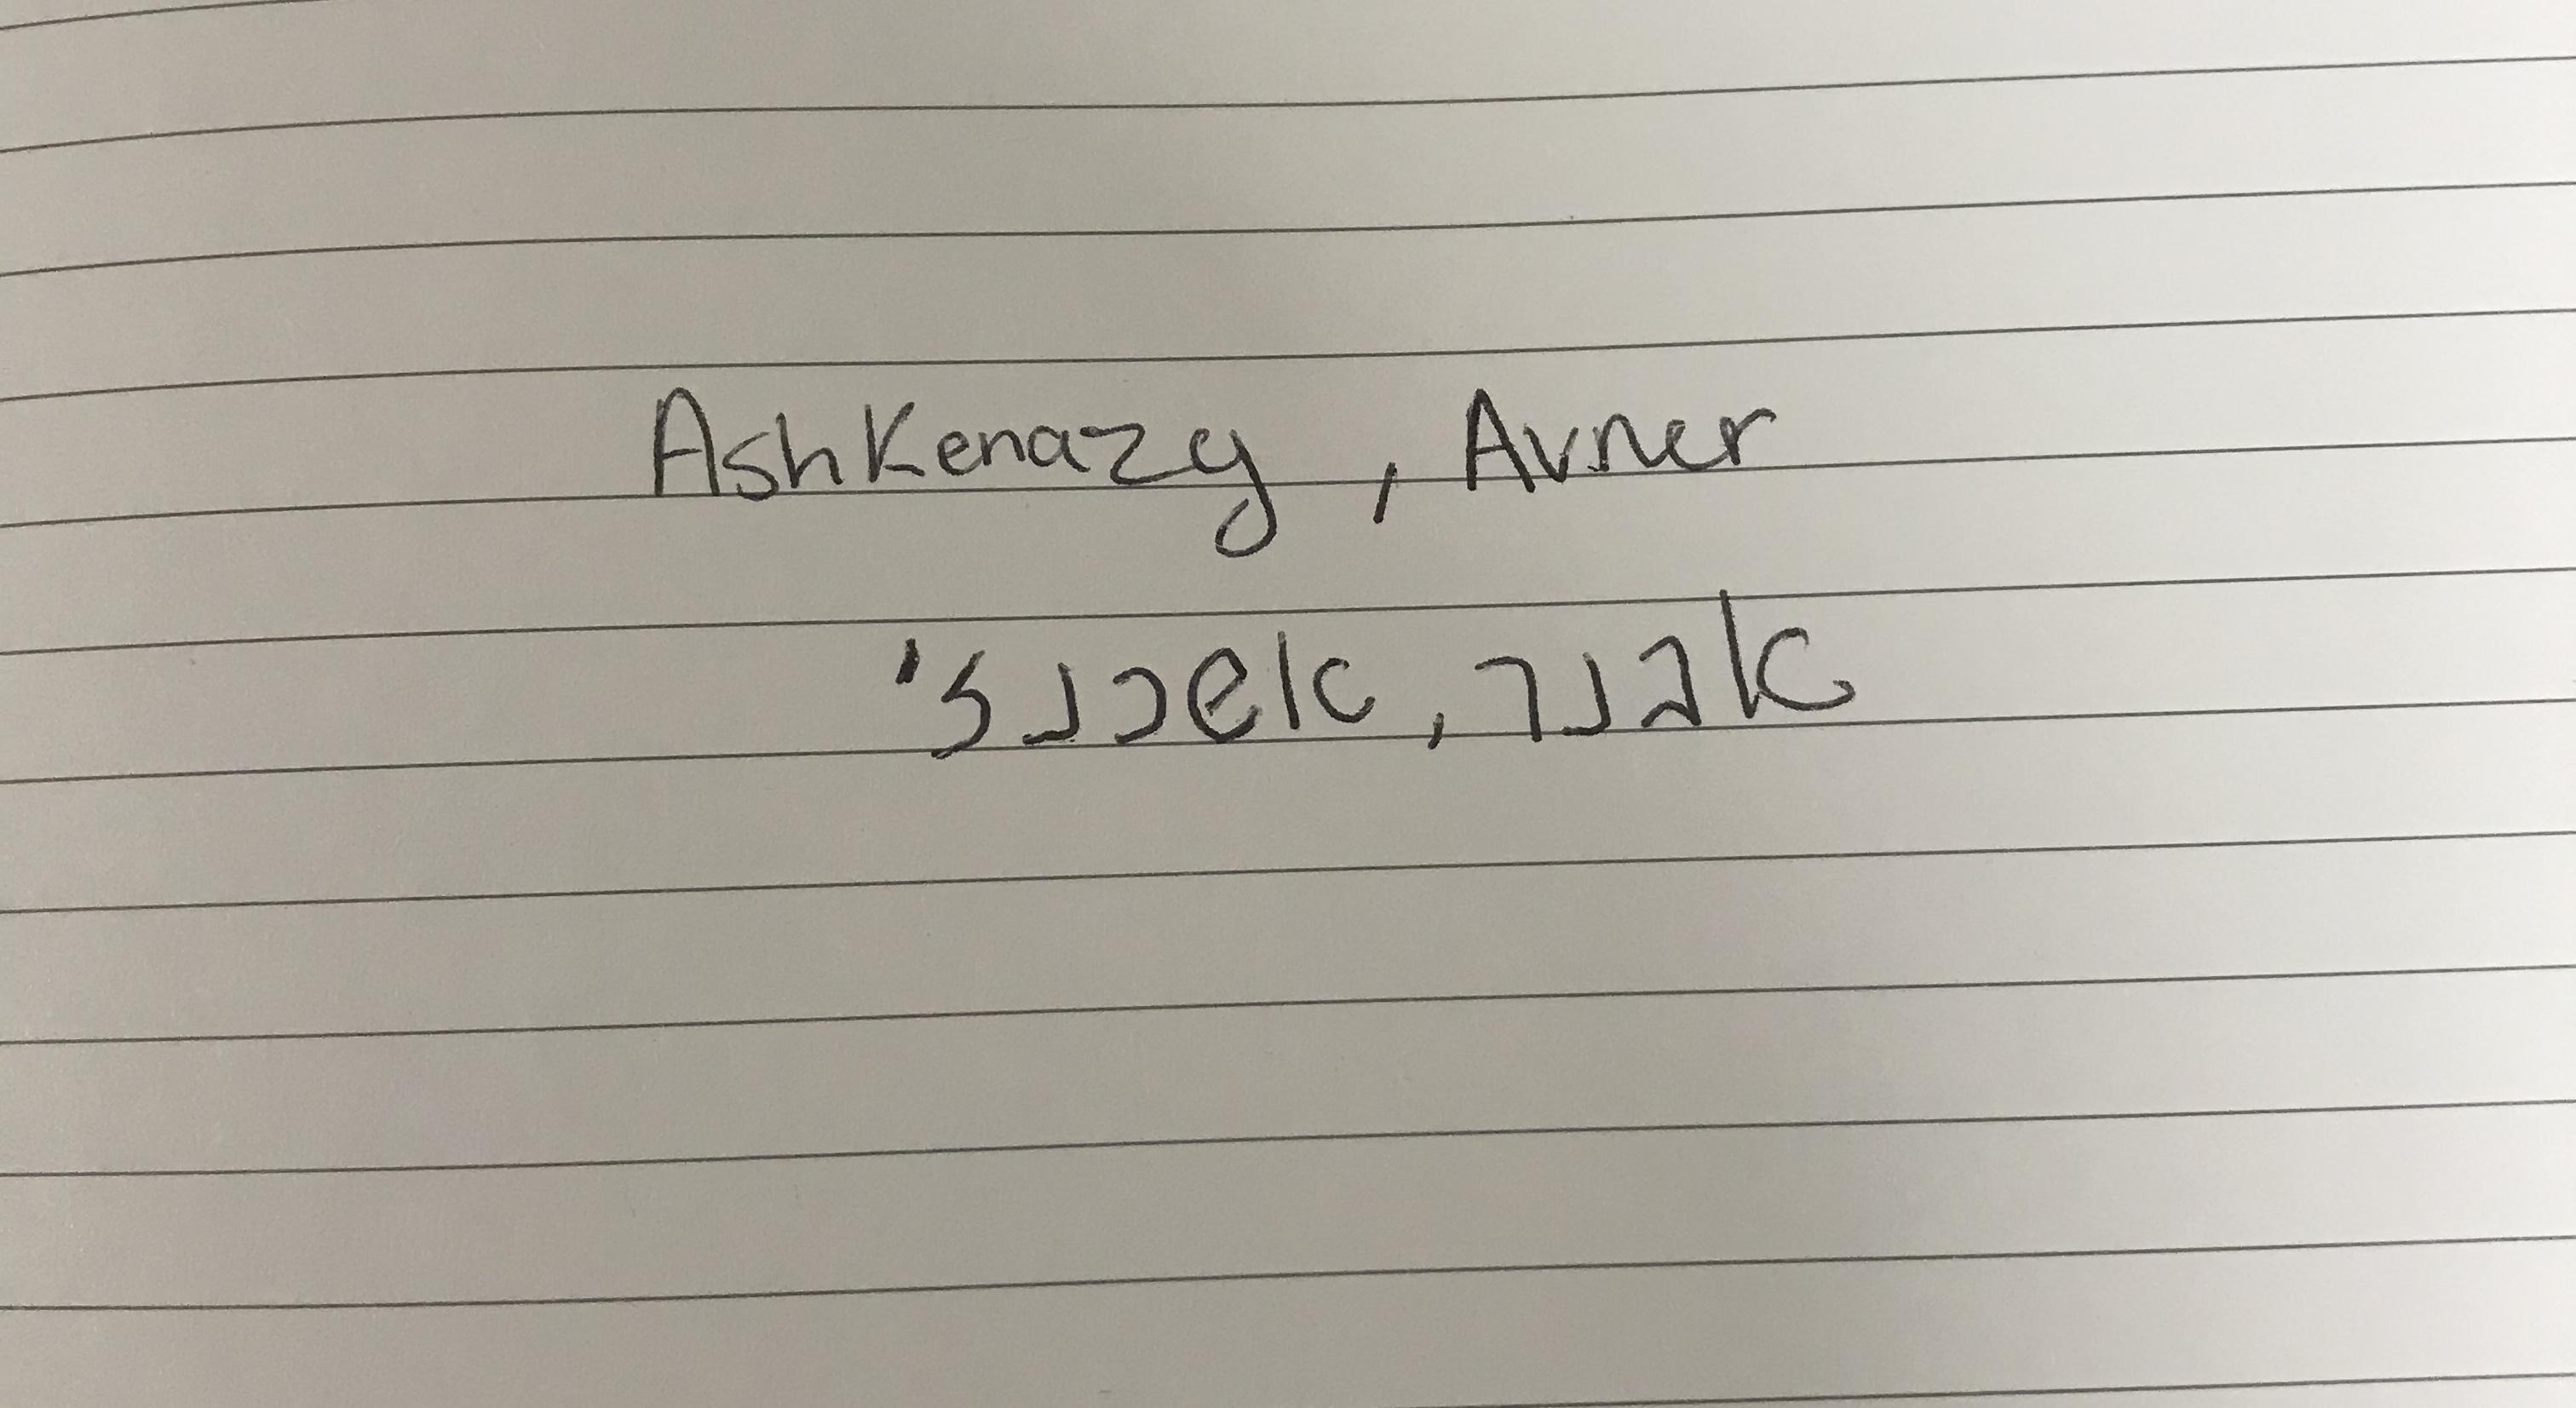 Ashkenazy, Avner
אבנר, אשכנזי